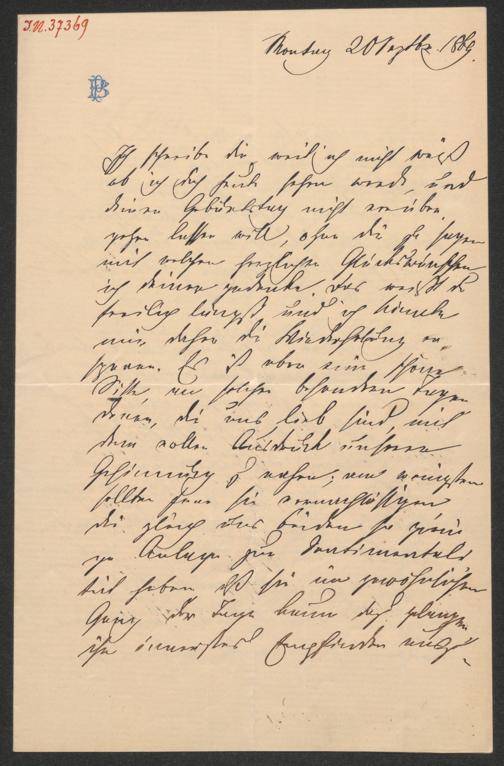 I.N. 37369
Montag 20 Septbr. 1869.
PB
Ich schreibe dir, weil ich nicht weiß
ob ich dich heute sehen werde, und
deinen Geburtstag nicht vorüber
gehen lassen will, ohne dir zu sagen
mit welchen herzlichen Glückwünschen
ich deiner gedenke. Das weißt du
freilich längst, und ich könnte
mir daher die Wiederholung er
sparen. Es ist aber eine schöne
Sitte, an solchen besonderen Tagen
denen, die uns lieb sind, mit
dem vollen Ausdruck unserer
Gesinnung zu nahen; am wenigsten
sollten jene sie vernachlässigen
die gleich uns beiden so wenig
Anlage zur Sentimentali
tät haben, daß sie im gewöhnlichen
Gang der Tage kaum dazu
ihr innerstes Empfinden